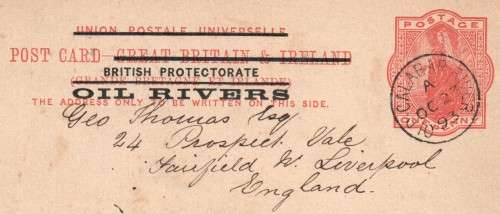 UNION POSTALE UNIVERSELLE
POST CARD GREAT BRITAIN & IRELAND
BRITISH PROTECTORATE
(GRANDE BRETAGNE ET IRLANDE)
OIL RIVERS
THE ADDRESS ONLY TO BE WRITTEN ON THIS SIDE.
Geo Thomas Esq
24 Prospect Vale
Fairfield W. Liverpool
England.
POSTAGE
ONE PENNY
CALABAR RIVER
A
OC 23
93